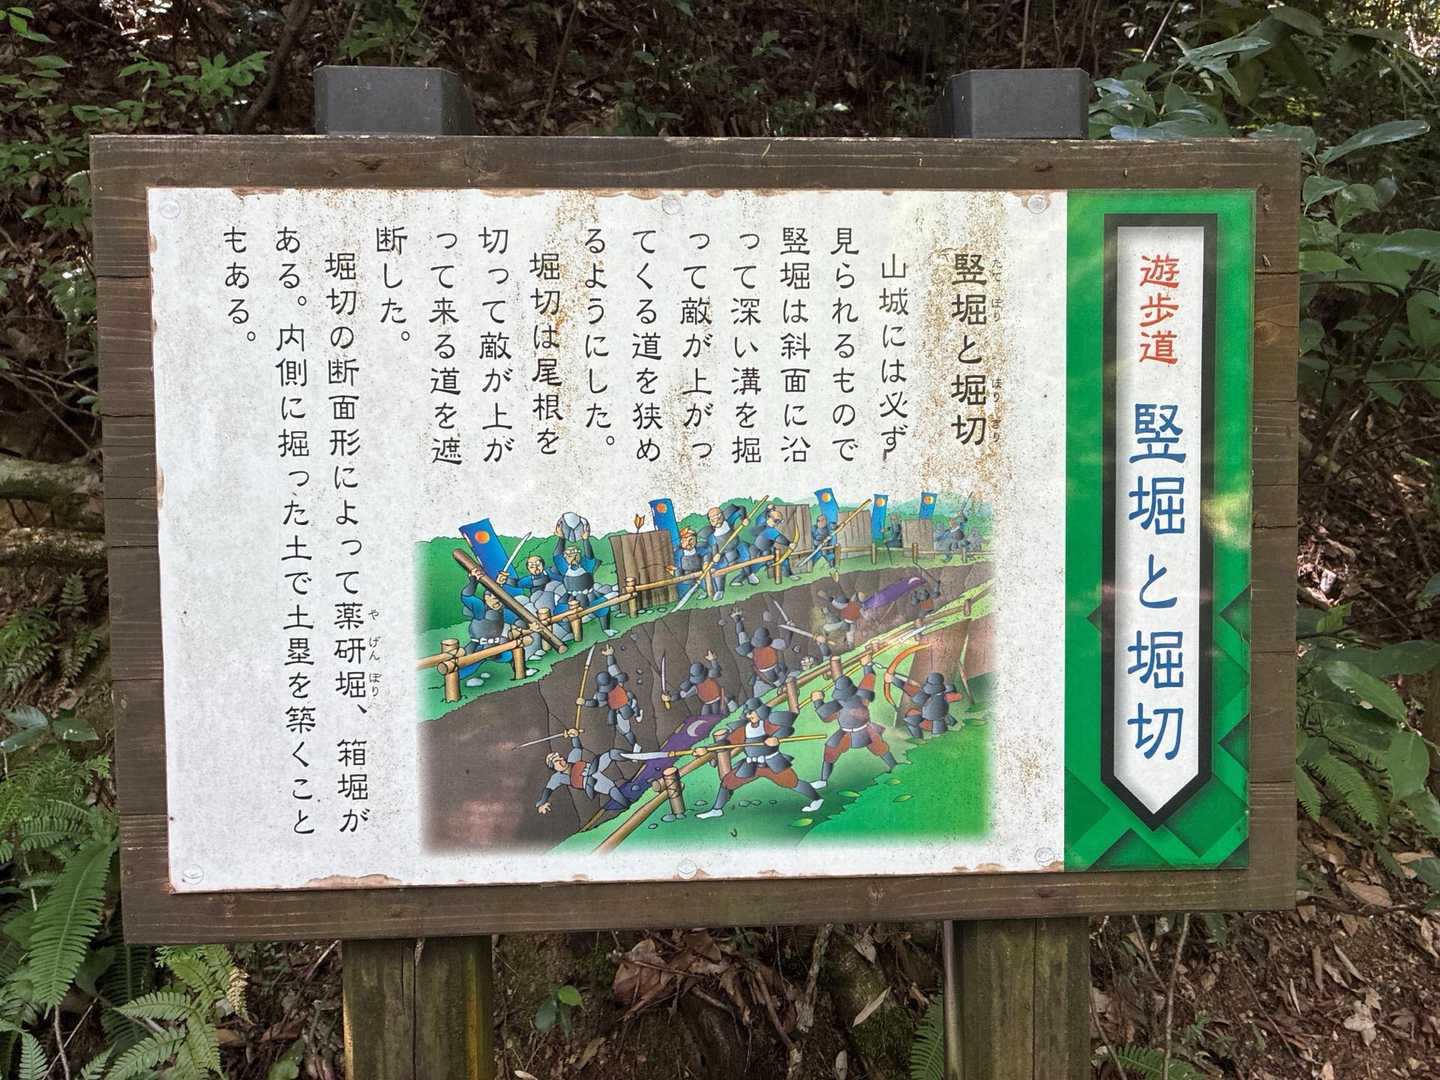 遊歩道 竪堀と堀切
竪堀と堀切
たて ぼり ほり ぎり
山城には必ず
見られるもので
竪堀は斜面に沿
って深い溝を掘
って敵が上がっ
てくる道を狭め
るようにした。
堀切は尾根を
切って敵が上が
って来る道を遮
断した。
堀切の断面形によって薬研堀、箱堀が
や げん ぼり
ある。内側に掘った土で土塁を築くこと
もある。